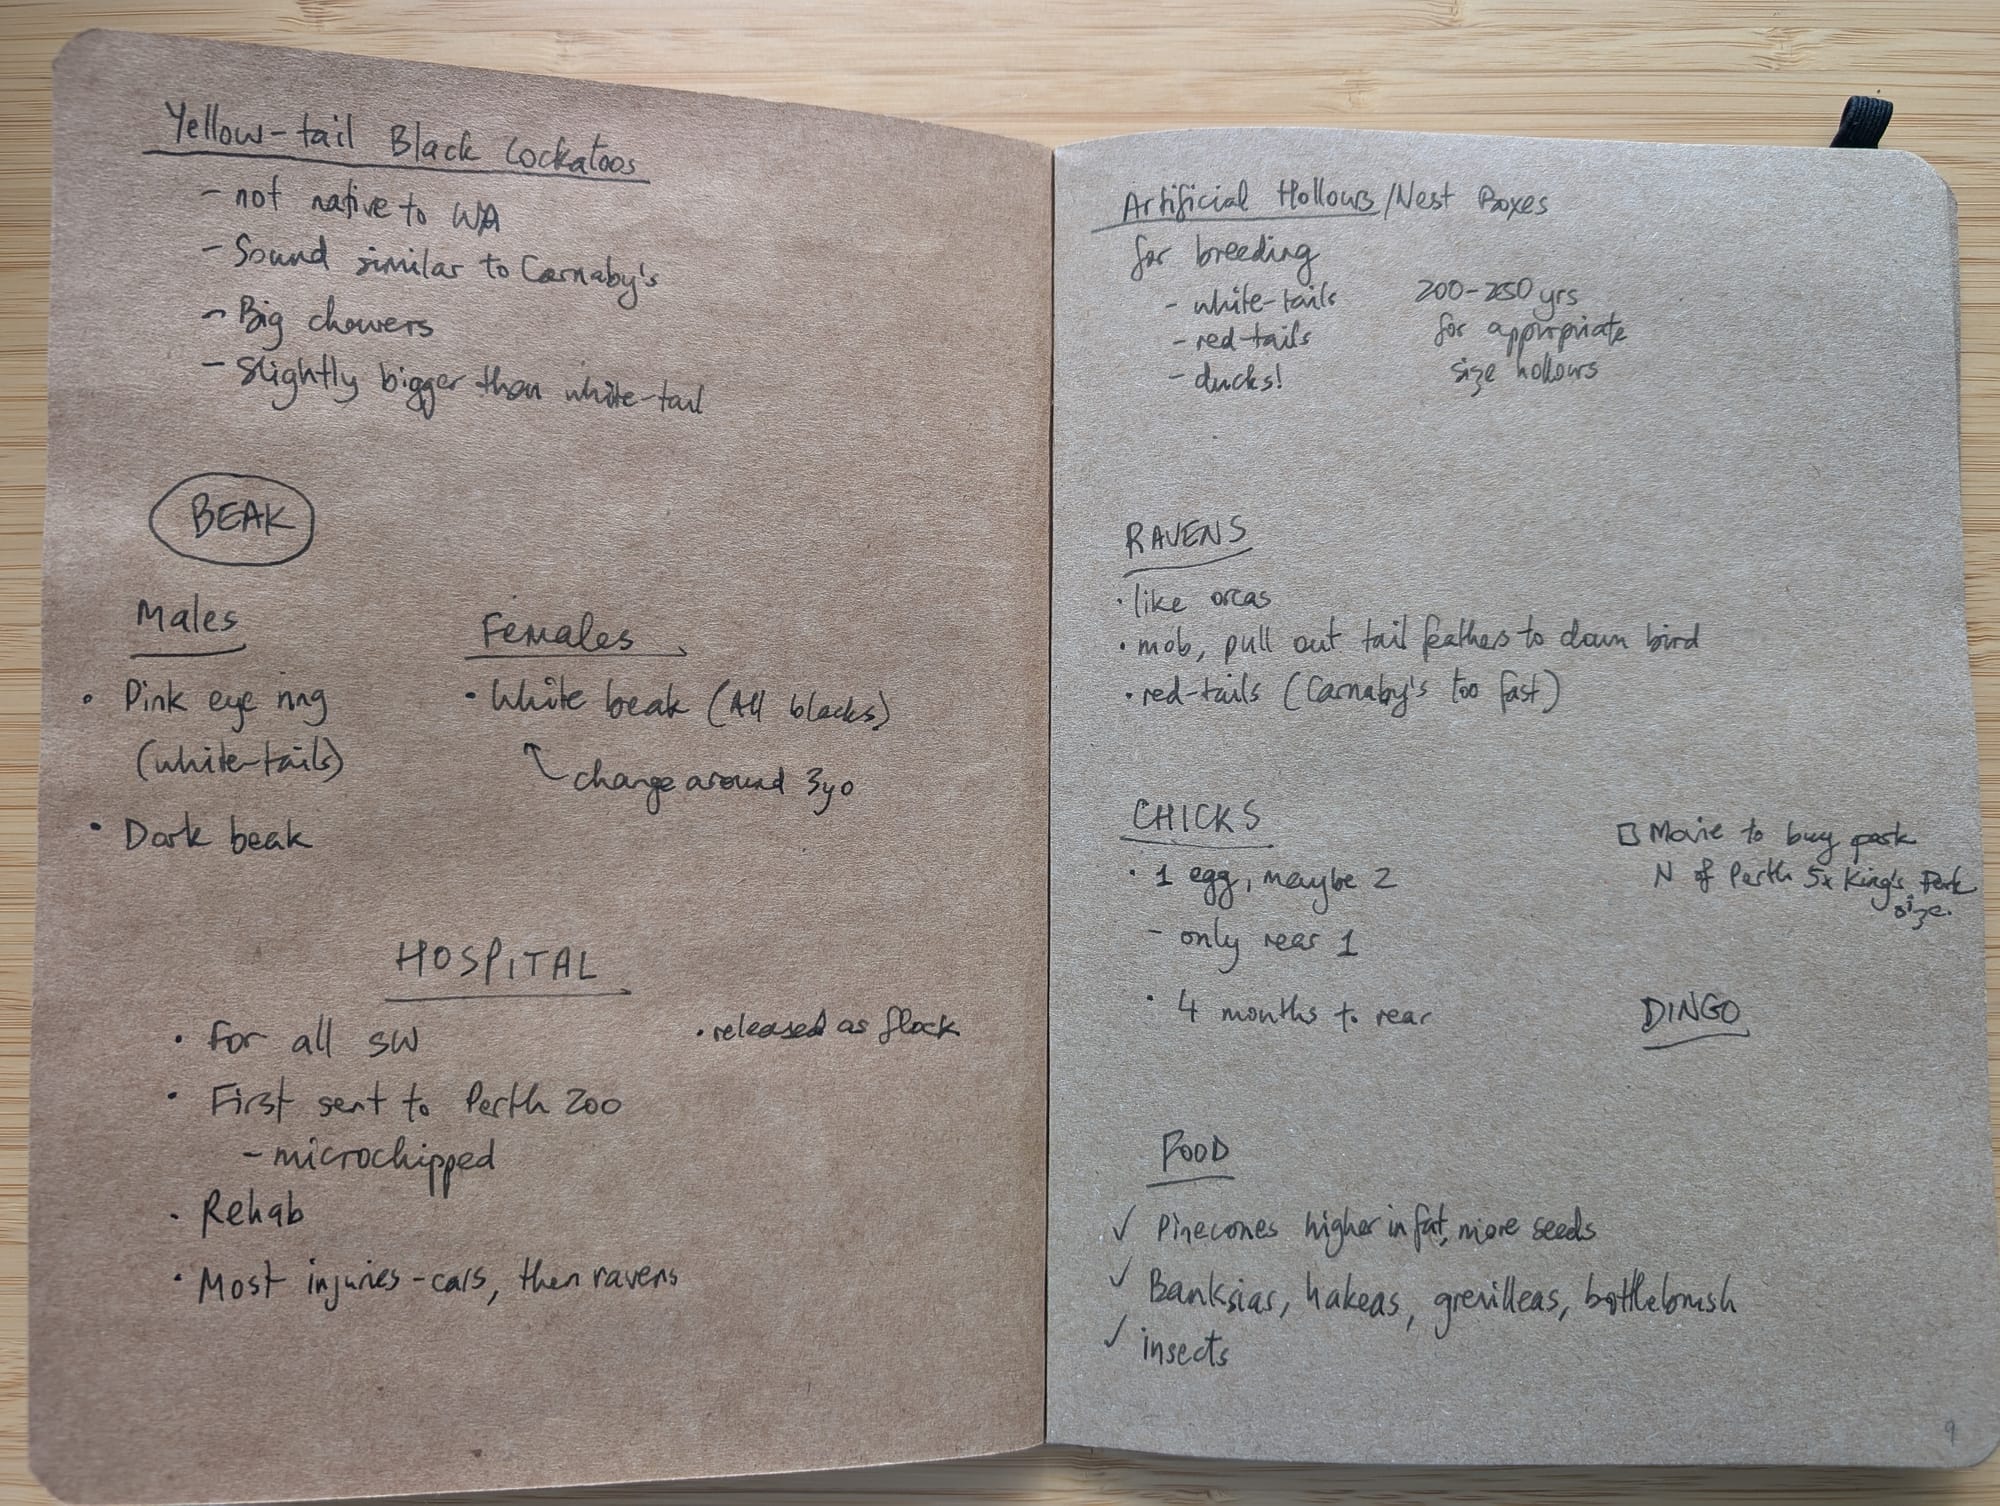 Yellow-tail Black Cockatoos
- not native to WA
- Sound similar to Carnaby's
- Big chewers
- Slightly bigger than white-tail
BEAK
Males
• Pink eye ring
(white-tails)
• Dark beak
Females
• White beak (All blacks)
change around 3yo
HOSPITAL
• For all SW
• First sent to Perth Zoo
- microchipped
• Rehab
• Most injuries - cars, then ravens
• released as flock
Artificial Hollows/Nest Boxes
for breeding
- white-tails
- red-tails
- ducks!
200-250 yrs
for appropriate
size hollows
RAVENS
• like orcas
• mob, pull out tail feathers to down bird
• red-tails (Carnaby's too fast)
CHICKS
• 1 egg, maybe 2
- only rear 1
• 4 months to rear
□ Movie to buy park
N of Perth 5x King's Park
size.
DINGO
FOOD
✓ Pinecones higher in fat, more seeds
✓ Banksias, hakeas, grevilleas, bottlebrush
✓ insects
9